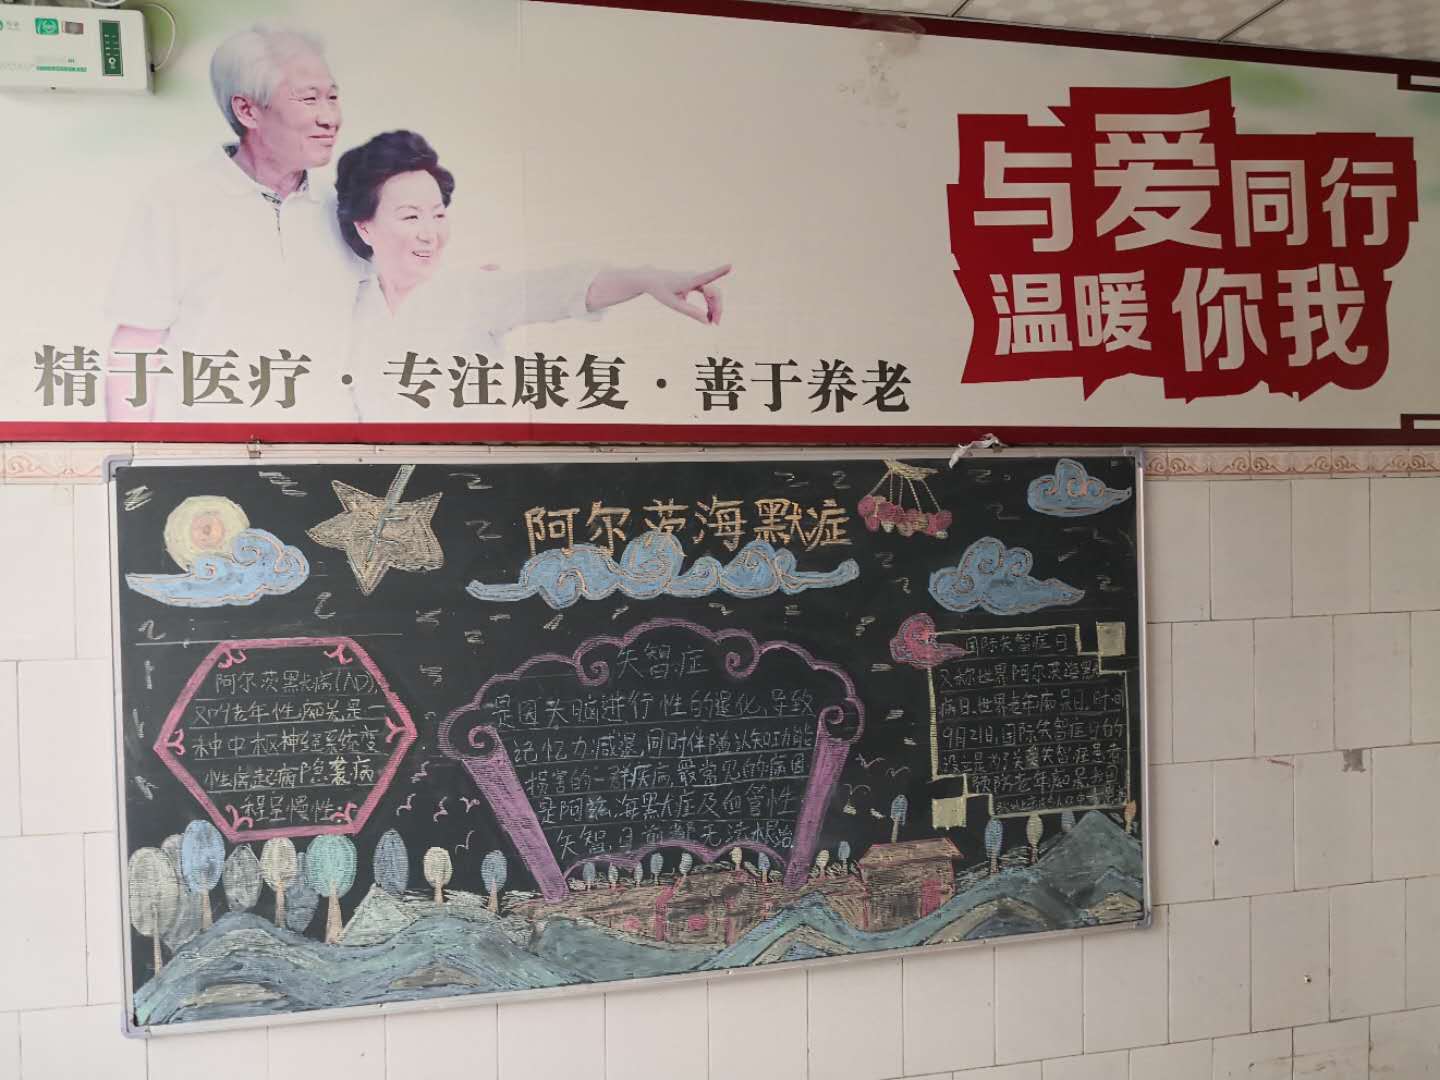 与爱同行
温暖你我
精于医疗·专注康复·善于养老
阿尔茨海默症
阿尔茨默病(AD),
又叫老年性痴呆,是一
种中枢神经系统变
性病起病隐袭病
程呈慢性
失智症
是因头脑进行性的退化,导致
记忆力减退,同时伴随认知功能
损害的一群疾病,最常见的病因
是阿兹海默症及血管性
失智,目前都无法根治.
国际失智症日
又称世界阿尔茨海默
病日、世界老年痴呆日,时间
9月21日,国际失智症日的
设立是为了关爱失智症患者
预防老年痴呆